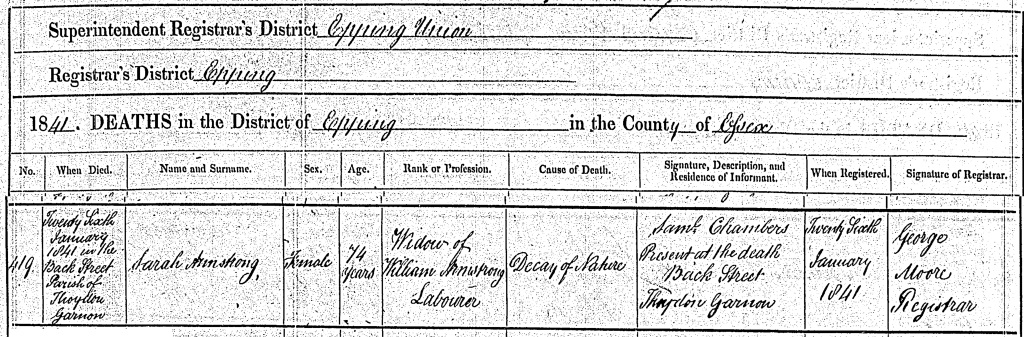 Superintendent Registrar's District Epping Union
Registrar's District Epping
1841. DEATHS in the District of Epping in the County of Essex
No. When Died. Name and Surname. Sex. Age. Rank or Profession. Cause of Death. Signature, Description, and Residence of Informant. When Registered. Signature of Registrar.
419.
Twenty Sixth
January
1841 in the
Back Street
Parish of
Theydon
Garnon
Sarah Armstrong
Female
74
Years
Widow of
William Armstrong
Labourer
Decay of Nature
Saml. Chambers
Present at the death
Back Street
Theydon Garnon
Twenty Sixth
January
1841
George
Moore
Registrar